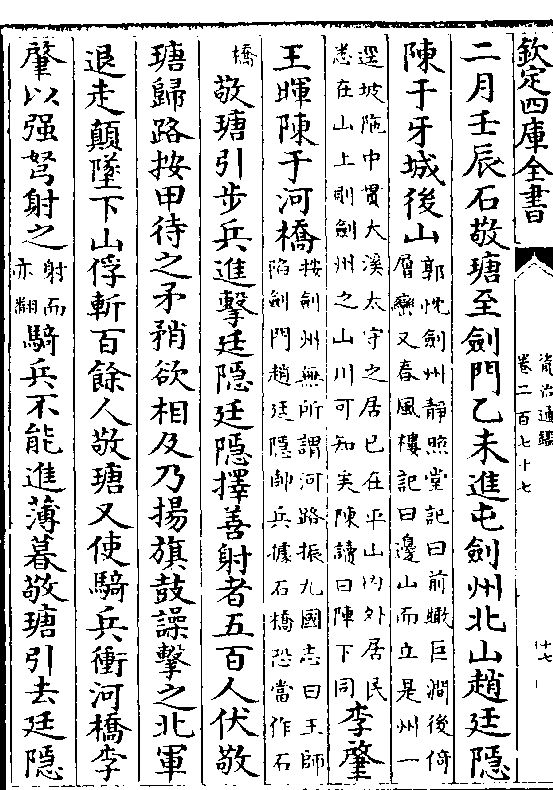 欽定四庫全書
資治通鑑
卷二百七十七
十七
二月壬辰石敬瑭至劍門乙未進屯劍州北山趙廷隱
陳于牙城後山郭忱劍州靜照堂記曰前瞰巨澗後倚層巒又春風樓記曰邊山而立是州一
逕坡陁中貫大溪太守之居已在平山内外居民悉在山上則劍州之山川可知矣陳讀曰陣下同李肇
王暉陳于河橋按劍州無所謂河路振九國志曰王師陷劍門趙廷隱帥兵據石橋恐當作石
橋敬瑭引步兵進擊廷隱廷隱擇善射者五百人伏敬
瑭歸路按甲待之矛矟欲相及乃揚旗鼓譟擊之北軍
退走顛墜下山俘斬百餘人敬瑭又使騎兵衝河橋李
肇以强弩射之射而亦翻騎兵不能進薄暮敬瑭引去廷隱